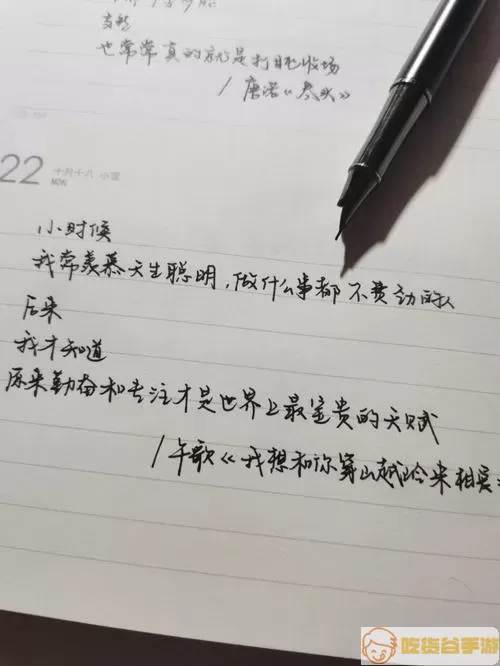 当然
也常常真的就是打脸收场
/唐诺《尽头》
22 十月十八 小雪
MON
小时候
我常羡慕天生聪明,做什么事都不费劲的人
后来
我才知道
原来勤奋和专注才是世界上最宝贵的天赋
/午歌《我想和你穿山越岭来相爱
吃货谷手游